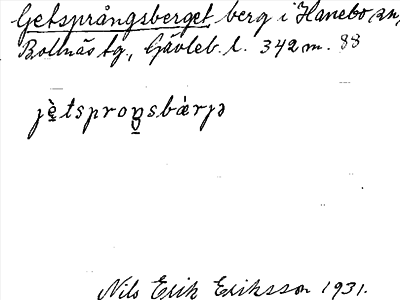 Getsprångsberget berg i Hanebo sn,
Bollnäs tg, Gävleb. l. 342 m. 88
jètsproŋsbærjə
Nils Erik Eriksson 1931.